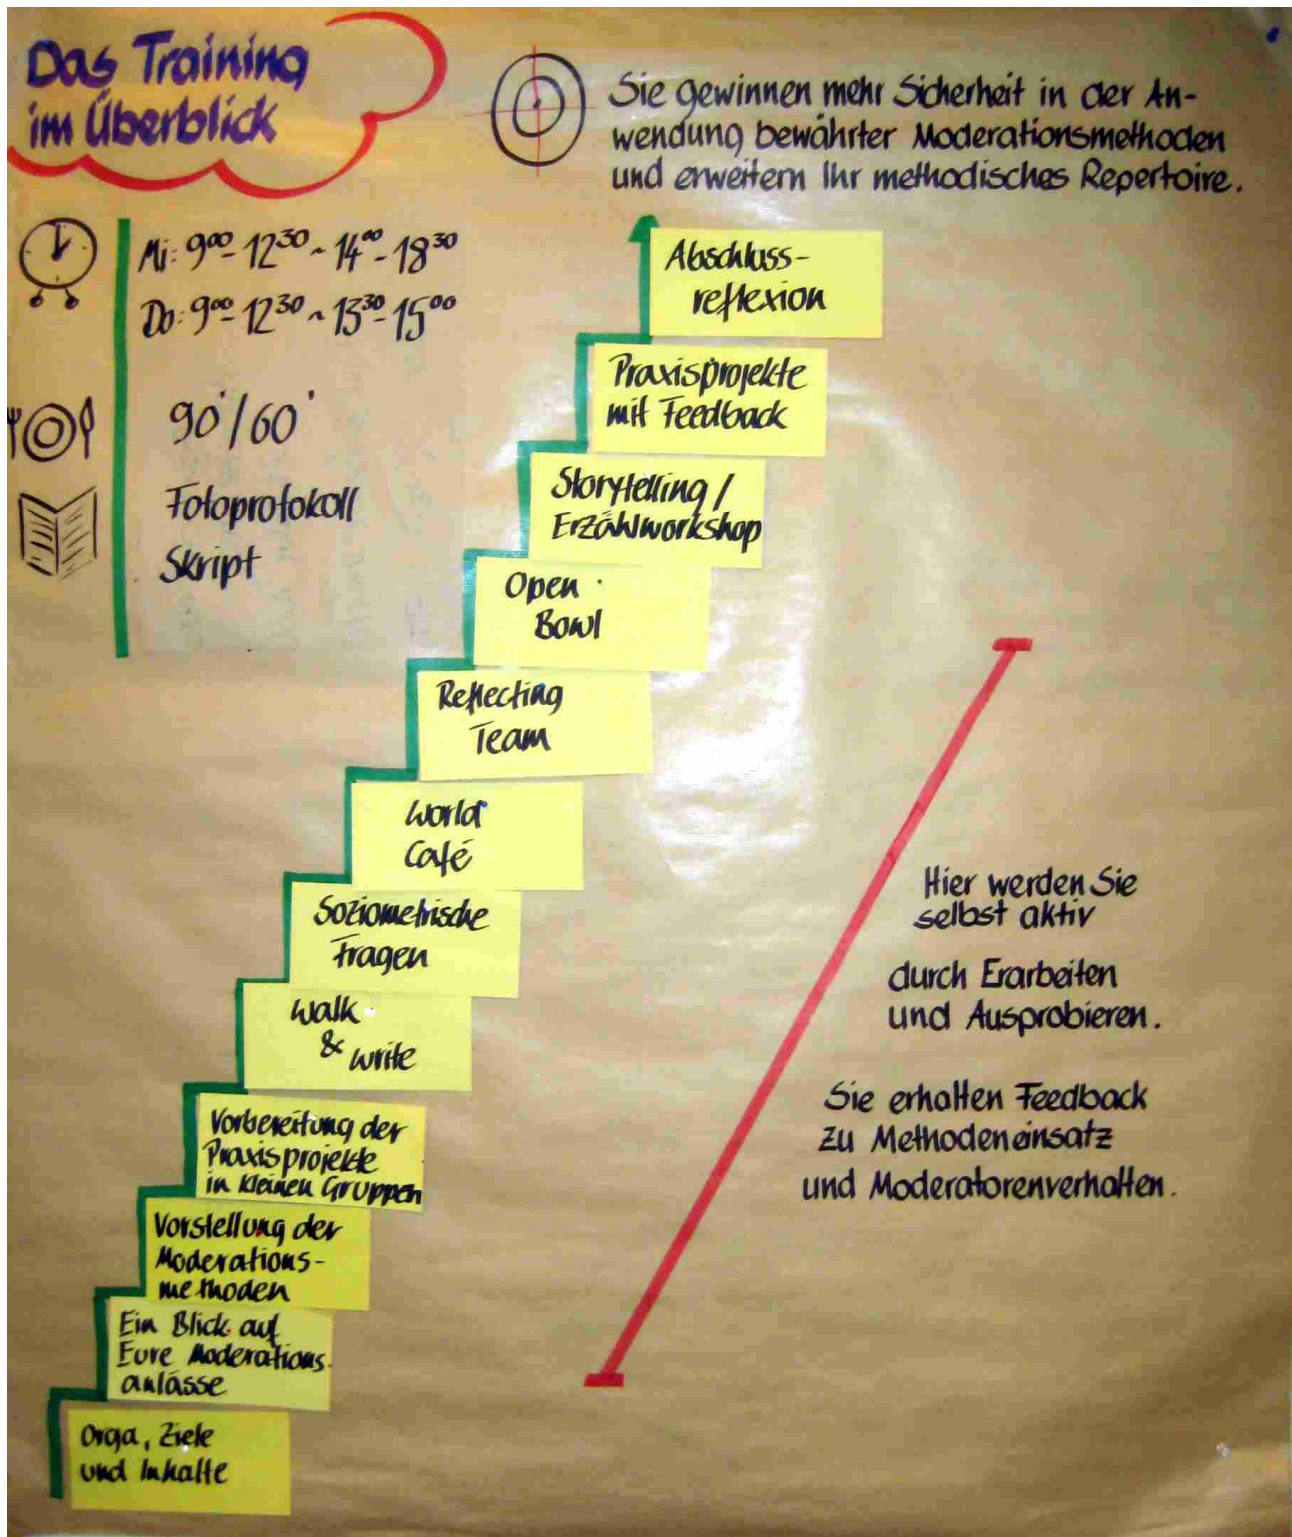 Das Training
im Überblick
Sie gewinnen mehr Sicherheit in der An-
wendung bewährter Moderationsmethoden
und erweitern Ihr methodisches Repertoire.
Mi: 9⁰⁰ - 12³⁰ ~ 14⁰⁰ - 18³⁰
Do: 9⁰⁰ - 12³⁰ ~ 13³⁰ - 15⁰⁰
90'/60'
Fotoprotokoll
Skript
Abschluss-
reflexion
Praxisprojekte
mit Feedback
Storytelling /
Erzählworkshop
Open
Bowl
Reflecting
Team
World
Café
Soziometrische
Fragen
Walk
& write
Vorbereitung der
Praxisprojekte
in kleinen Gruppen
Vorstellung der
Moderations-
methoden
Ein Blick auf
Eure Moderations-
anlässe
Orga, Ziele
und Inhalte
Hier werden Sie
selbst aktiv
durch Erarbeiten
und Ausprobieren.
Sie erhalten Feedback
zu Methodeneinsatz
und Moderatorenverhalten.